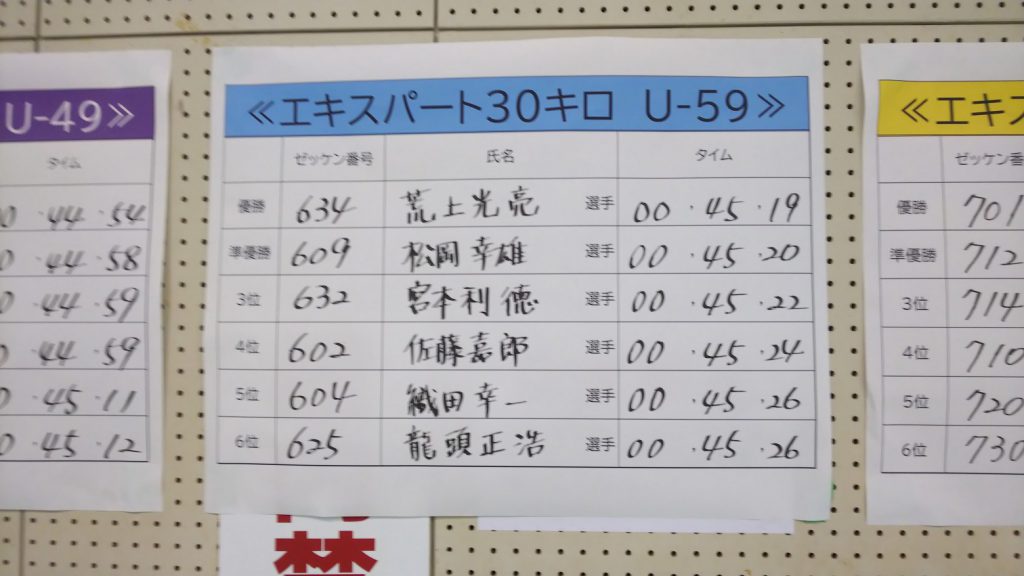 U-49≫
タイム
0 ・44・54
0 ・44・58
0 ・44・59
0 ・44・59
0 ・45・11
0 ・45・12
≪エキスパート30キロ U-59≫
ゼッケン番号 氏名 タイム
優勝 634 荒上光亮 選手 00・45・19
準優勝 609 松岡幸雄 選手 00・45・20
3位 632 宮本利徳 選手 00・45・22
4位 602 佐藤嘉郎 選手 00・45・24
5位 604 織田幸一 選手 00・45・26
6位 625 龍頭正浩 選手 00・45・26
≪エキス
ゼッケン番
優勝 701
準優勝 712
3位 714
4位 710
5位 720
6位 730
禁